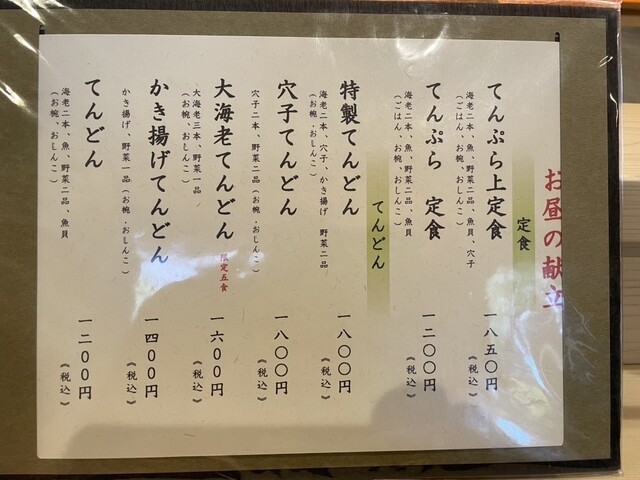 お昼の献立
定食
てんぷら上定食　一八五〇円
海老二本、魚、野菜二品、魚貝、穴子
（ごはん、お椀、おしんこ）
《税込》
てんぷら　定食　一二〇〇円
海老二本、魚、野菜二品、魚貝
（ごはん、お椀、おしんこ）
《税込》
てんどん
特製てんどん　一八〇〇円
海老二本、穴子、かき揚げ　野菜二品
（お椀．おしんこ）
《税込》
穴子てんどん　一八〇〇円
穴子二本、野菜二品（お椀．おしんこ）
《税込》
大海老てんどん　限定五食　一六〇〇円
大海老三本、野菜一品
（お椀、おしんこ）
《税込》
かき揚げてんどん　一四〇〇円
かき揚げ、野菜一品（お椀．おしんこ）
《税込》
てんどん　一二〇〇円
海老二本、魚、野菜二品、魚貝
（お椀、おしんこ）
《税込》